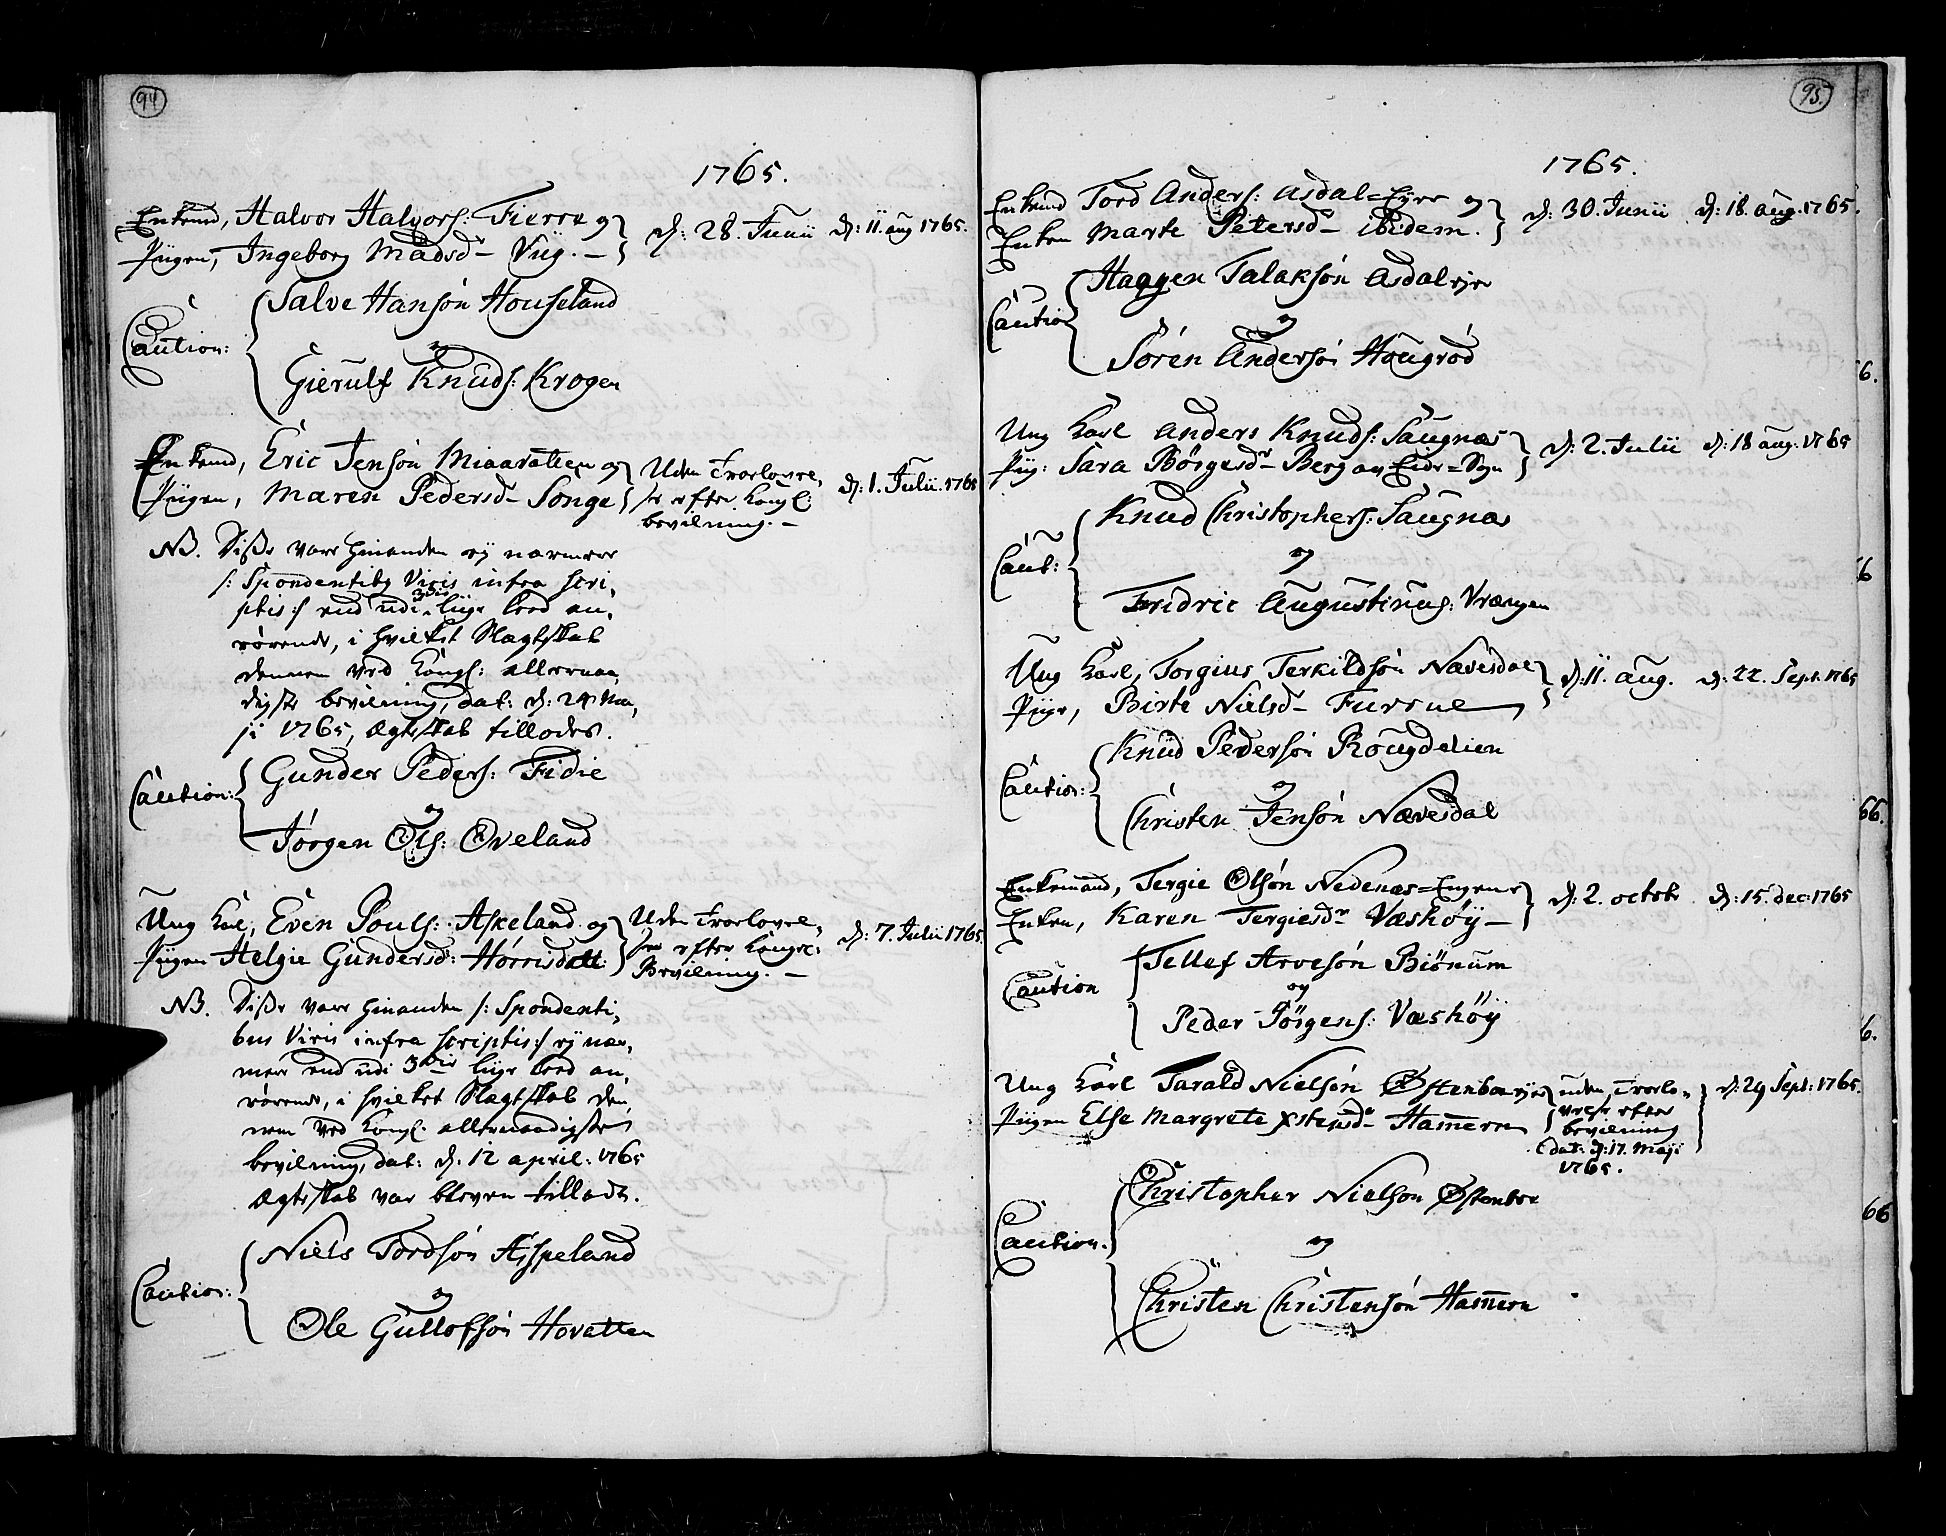 94
1765.
Enkemd, Halvor Halvors: Fierre og
Piigen, Ingeborg Madsd- Viig. -
d: 28. Junii
d: 11. aug 1765.
Caution:
Salve Hansøn Houseland
og
Gierulf Knuds: Krogen
Enkemd, Eric Jensøn Miaavatten og
Piigen, Maren Pedersd- Songe
Uden Troelovel-
se efter Kongl:
bevilning. -
d: 1. Julii. 1765
NB. Disse vare hinanden ej nærmere
/: Spondentibg Viris infra scri-
ptis :/ end udi 3die liige Leed an-
rørende, i hvilket Slægtskab
dennem ved Kongl: allernaa-
digste bevilning, dat: d: 24 Ma-
ji 1765, Ægteskab tillodes.
Caution:
Gunder Peders: Fidie
og
Jørgen Ols: Oveland
Ung Karl, Even Pouls: Askeland og
Piigen Helgie Gundersd: Hørrisdall:
Uden Troelovel-
se efter Kongel:
Bevilning. -
d: 7. Julii 1765.
NB. Disse vare hinanden /: Spondenti-
bus Viris infra scriptis :/ ej nær-
mere end udi 3die liige Leed an-
rørende, i hvilket Slægtskab den-
nem ved Kongl: allernaadigste
bevilning, dat: d: 12 april: 1765
Ægteskab var bleven tilladt.
Caution:
Niels Tordsøn Aspeland
og
Ole Gullofsøn Hovatten
95.
1765.
Enkemd Tord Anders: Asdal=Eyre og
Enken Marte Petersd- ibidem.
d: 30. Junii
d: 18. aug. 1765.
Caution
Haagen Talaksøn Asdaleyre
og
Søren Andersøn Hougrød
Ung Karl Anders Knuds: Saugnæs
Piig: Sara Børgesdr- Berg av Eide=Sogn
d: 2. Julii
d: 18 aug. 1765
Caut:
Knud Christophers: Saugnæs
og
Fridric Augustinus: Vrængen
Ung Karl, Torgius Terkildsøn Nævesdal
Piige, Birte Nielsd- Furrue
d: 11. aug.
d: 22. Sept: 1765
Caution:
Knud Pedersøn Rougdelien
og
Christen Jensøn Nævesdal
Enkemand, Tergie Olsøn Nedenæs=Engene
Enken, Karen Tergiesdr Væskøÿ-
d: 2. octob
d: 15. dec: 1765
Caution
Tellef Arvesøn Biønum
og
Peder Jørgens: Væskøÿ
Ung Karl Tarald Nielsøn Østenboeeje
Piigen Else Margrete Xstensdr Hammern
uden Troelo-
velse efter
bevilning
dat: d: 17. Maji
1765.
d: 29 Sept: 1765.
Caution.
Christopher Nielsøn Østenboe
og
Christen Christensøn Hammern
6.
6
66.
6.
66